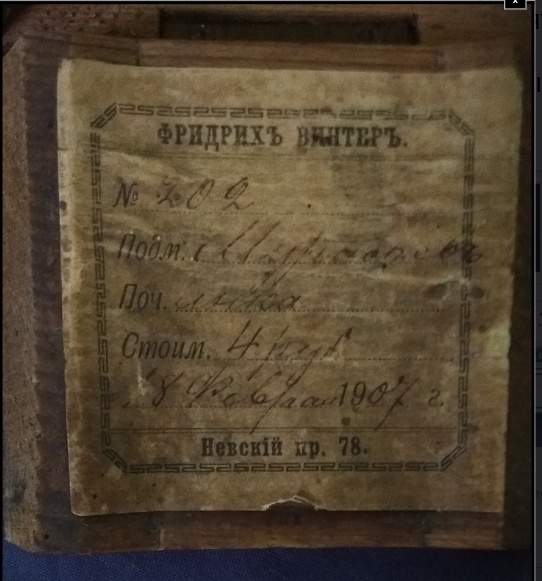 ФРИДРИХЪ ВИНТЕРЪ.
№ 202
Подм.
Поч.
Стоим. 4 руб
18 Февраля 1907 г.
Невскій пр. 78.